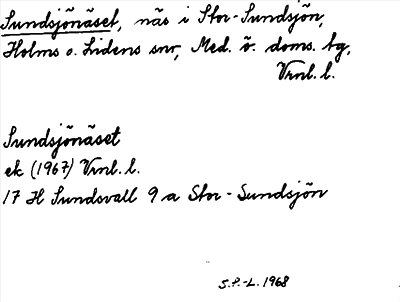 Sundsjönäset, näs i Stor-Sundsjön,
Holms o. Lidens snr, Med. ö. doms. tg,
Vrnl. l.
Sundsjönäset
ek (1967) Vrnl. l.
17 H Sundsvall 9 a Stor-Sundsjön
S.P.-L. 1968